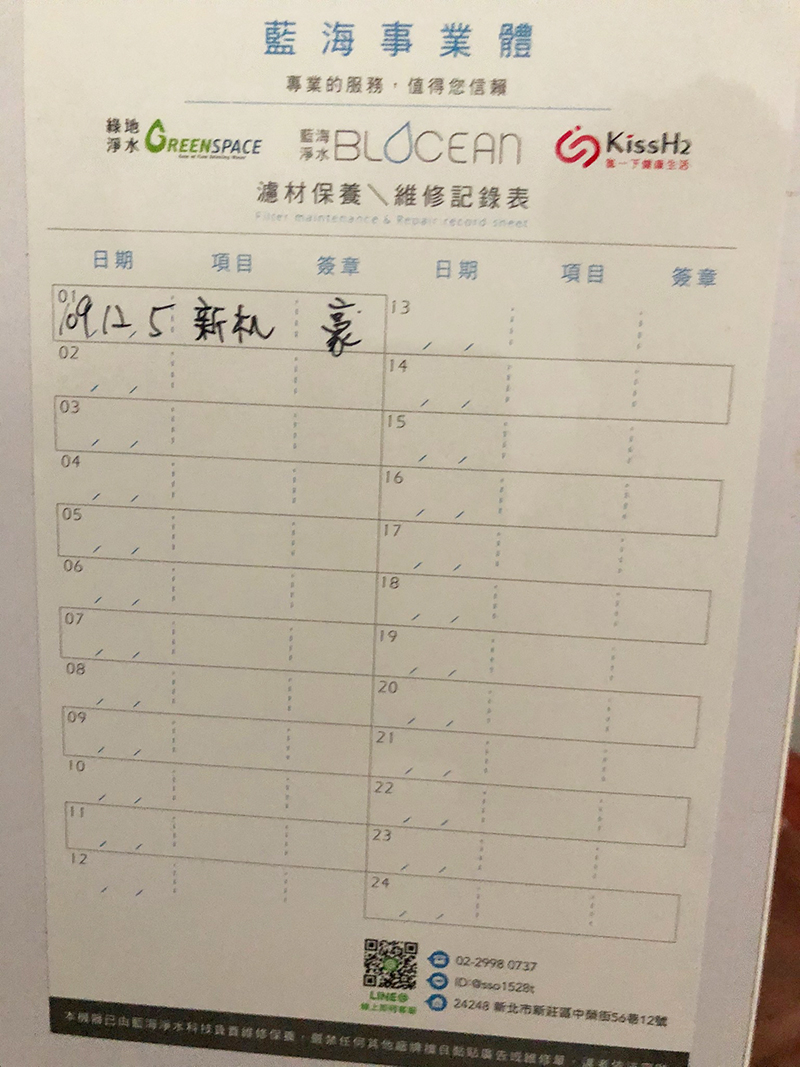 藍海事業體
專業的服務，值得您信賴
綠地淨水 GREENSPACE
藍海淨水 BLOCEAN
KissH2
氫一下健康生活
濾材保養＼維修記錄表
Filter maintenance & Repair record sheet
日期 項目 簽章 日期 項目 簽章
01 109.12.5 新机 豪
13
02
14
03
15
04
16
05
17
06
18
07
19
08
20
09
21
10
22
11
23
12
24
02-2998 0737
ID:@sso1528t
24248 新北市新莊區中榮街56巷12號
LINE@
線上即時客服
本機器已由藍海淨水科技負責維修保養，嚴禁任何其他廠牌擅自黏貼廣告或維修單，違者依法